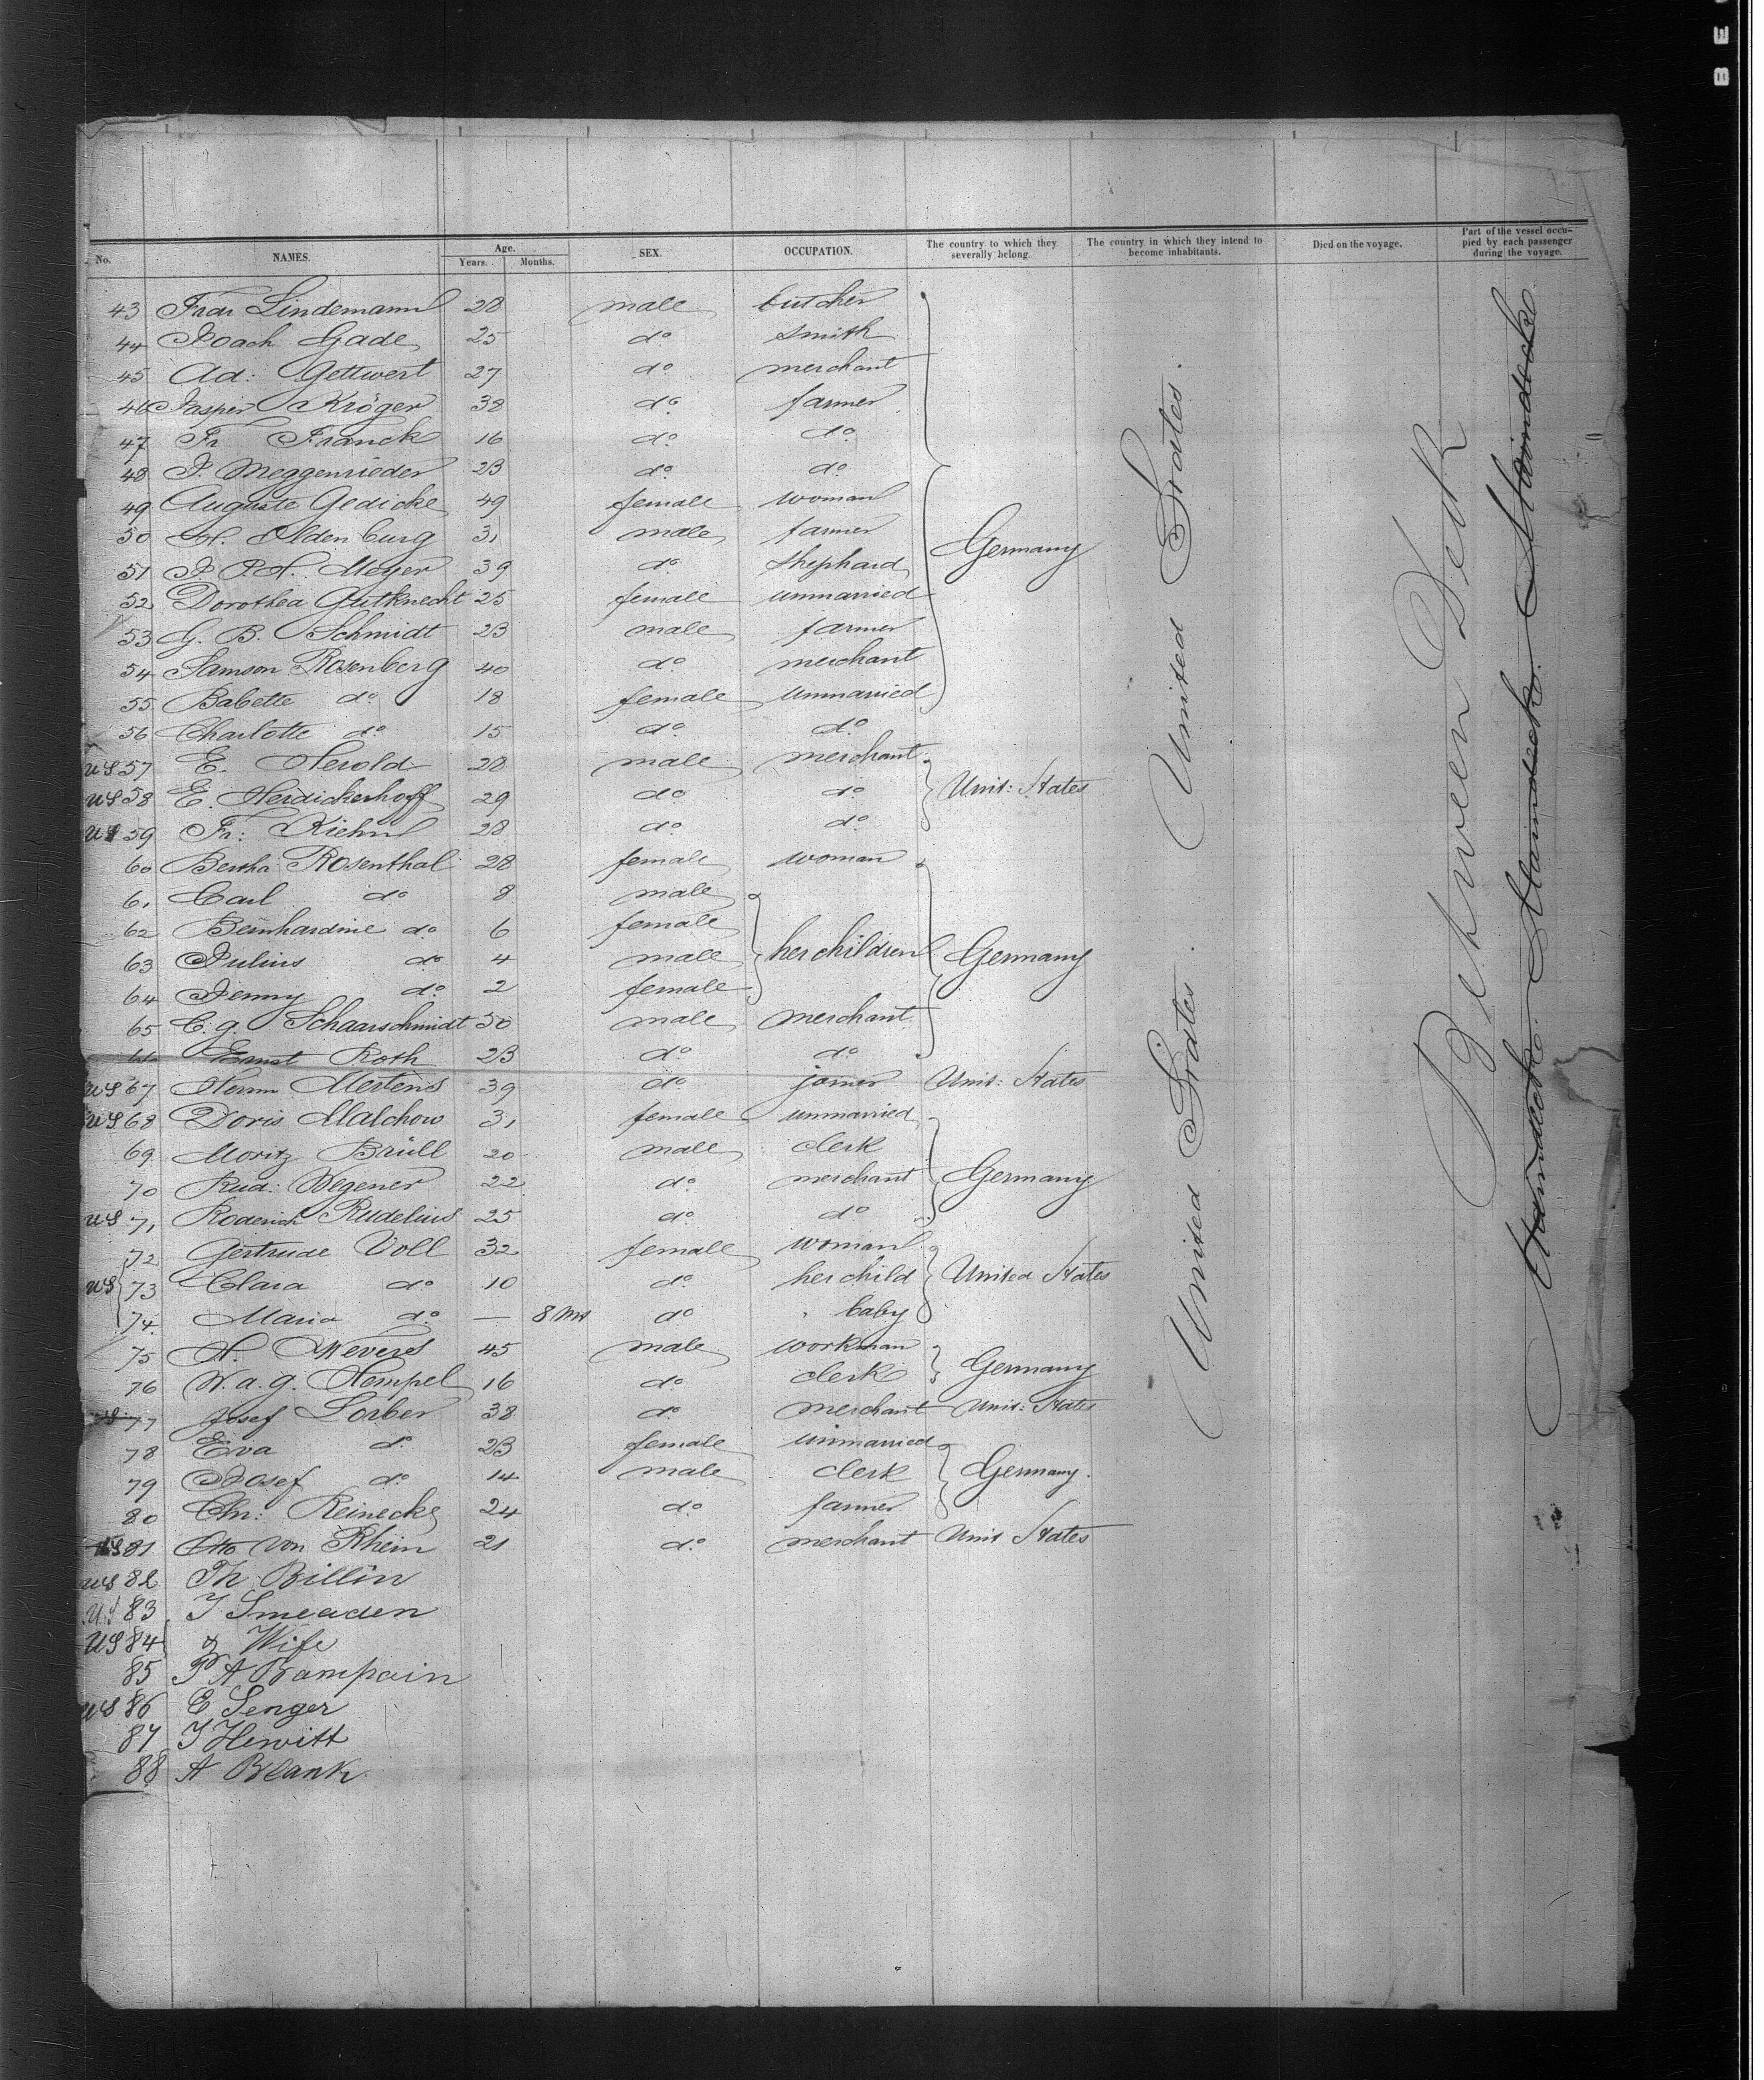 No. NAMES. Age. Years. Months. SEX. OCCUPATION. The country to which they severally belong. The country in which they intend to become inhabitants. Died on the voyage. Part of the vessel occupied by each passenger during the voyage.
43 Lindemann 28 male butcher
44 Joach Gade 25 do smith
45 Ad: Gettwert 27 do merchant
46 Jasper Kröger 38 do farmer
47 Fr Franck 16 do do
48 J. Meggenrieder 23 do do
49 Auguste Gedicke 49 female woman
50 H. Oldenburg 31 male farmer
Germany
51 J. P. H. Meyer 39 do shephard
52 Dorothea Gutknecht 25 female unmarried
53 G. B. Schmidt 23 male farmer
54 Samson Rosenberg 40 do merchant
55 Babette do 18 female unmarried
56 Charlotte do 15 do do
US 57 E. Herold 28 male merchant
US 58 E. Herdickerhoff 29 do do Unit: States
US 59 Fr: Kiehn 28 do do
60 Bertha Rosenthal 28 female woman
61 Carl do 8 male
62 Bernhardine do 6 female
63 Julius do 4 male her children Germany
64 Jenny do 2 female
65 C. G. Schaarschmidt 50 male merchant
66 Ernst Roth 23 do do
US 67 Herm Mertens 39 do joiner Unit: States
US 68 Doris Malchow 31 female unmarried
69 Moritz Brüll 20 male clerk
70 Rud: Wegener 22 do merchant Germany
US 71 Roderich Rudelius 25 do do
72 Gertrude Voll 32 female woman
US 73 Clara do 10 do her child United States
74 Maria do — 8 Mts do baby
75 H. Wevers 45 male workman
76 W. a. g. Hempel 16 do clerk Germany
US 77 Josef Lorber 38 do merchant Unit: States
78 Eva do 23 female unmarried
79 Josef do 14 male clerk Germany.
80 Chr: Reinecke 24 do farmer
US 81 Otto von Rhein 21 do merchant Unit States
US 82 Th Billin
US 83 J Smeaden
US 84 & Wife
85 P A Bampain
US 86 E Senger
87 J Hewitt
88 A Blank
United States. United States.
Between Deck